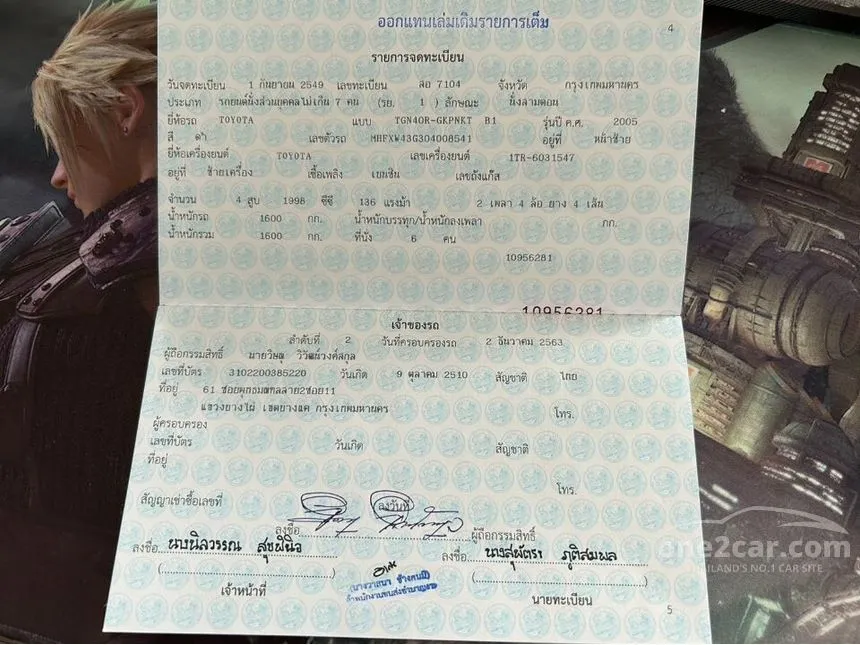 ออกแทนเล่มเดิมรายการเต็ม
4
รายการจดทะเบียน
วันจดทะเบียน 1 กันยายน 2549 เลขทะเบียน ลอ 7104 จังหวัด กรุงเทพมหานคร
ประเภท รถยนต์นั่งส่วนบุคคลไม่เกิน 7 คน (รย. 1 ) ลักษณะ นั่งสามตอน
ยี่ห้อรถ TOYOTA แบบ TGN40R-GKPNKT B1 รุ่นปี ค.ศ. 2005
สี ดำ เลขตัวรถ MHFXW43G304008541 อยู่ที่ หน้าซ้าย
ยี่ห้อเครื่องยนต์ TOYOTA เลขเครื่องยนต์ 1TR-6031547
อยู่ที่ ซ้ายเครื่อง เชื้อเพลิง เบนซิน เลขถังแก๊ส
จำนวน 4 สูบ 1998 ซีซี 136 แรงม้า 2 เพลา 4 ล้อ ยาง 4 เส้น
น้ำหนักรถ 1600 กก. น้ำหนักบรรทุก/น้ำหนักลงเพลา กก.
น้ำหนักรวม 1600 กก. ที่นั่ง 6 คน
10956281
10956281
เจ้าของรถ
ลำดับที่ 2 วันที่ครอบครองรถ 2 ธันวาคม 2563
ผู้ถือกรรมสิทธิ์ นายวิษณุ วิวัฒน์วงศ์สกุล
เลขที่บัตร 3102200385220 วันเกิด 9 ตุลาคม 2510 สัญชาติ ไทย
ที่อยู่ 61 ซอยพุทธมณฑลสาย2ซอย11
แขวงบางไผ่ เขตบางแค กรุงเทพมหานคร โทร.
ผู้ครอบครอง
เลขที่บัตร วันเกิด สัญชาติ
ที่อยู่
โทร.
สัญญาเช่าซื้อเลขที่ ลงวันที่
ลงชื่อ ผู้ถือกรรมสิทธิ์
ลงชื่อ ลงชื่อ นางสุพัตรา ภูติสมพล
( ) ( )
เจ้าหน้าที่ นายทะเบียน
5
one2car.com
THAILAND'S NO.1 CAR SITE